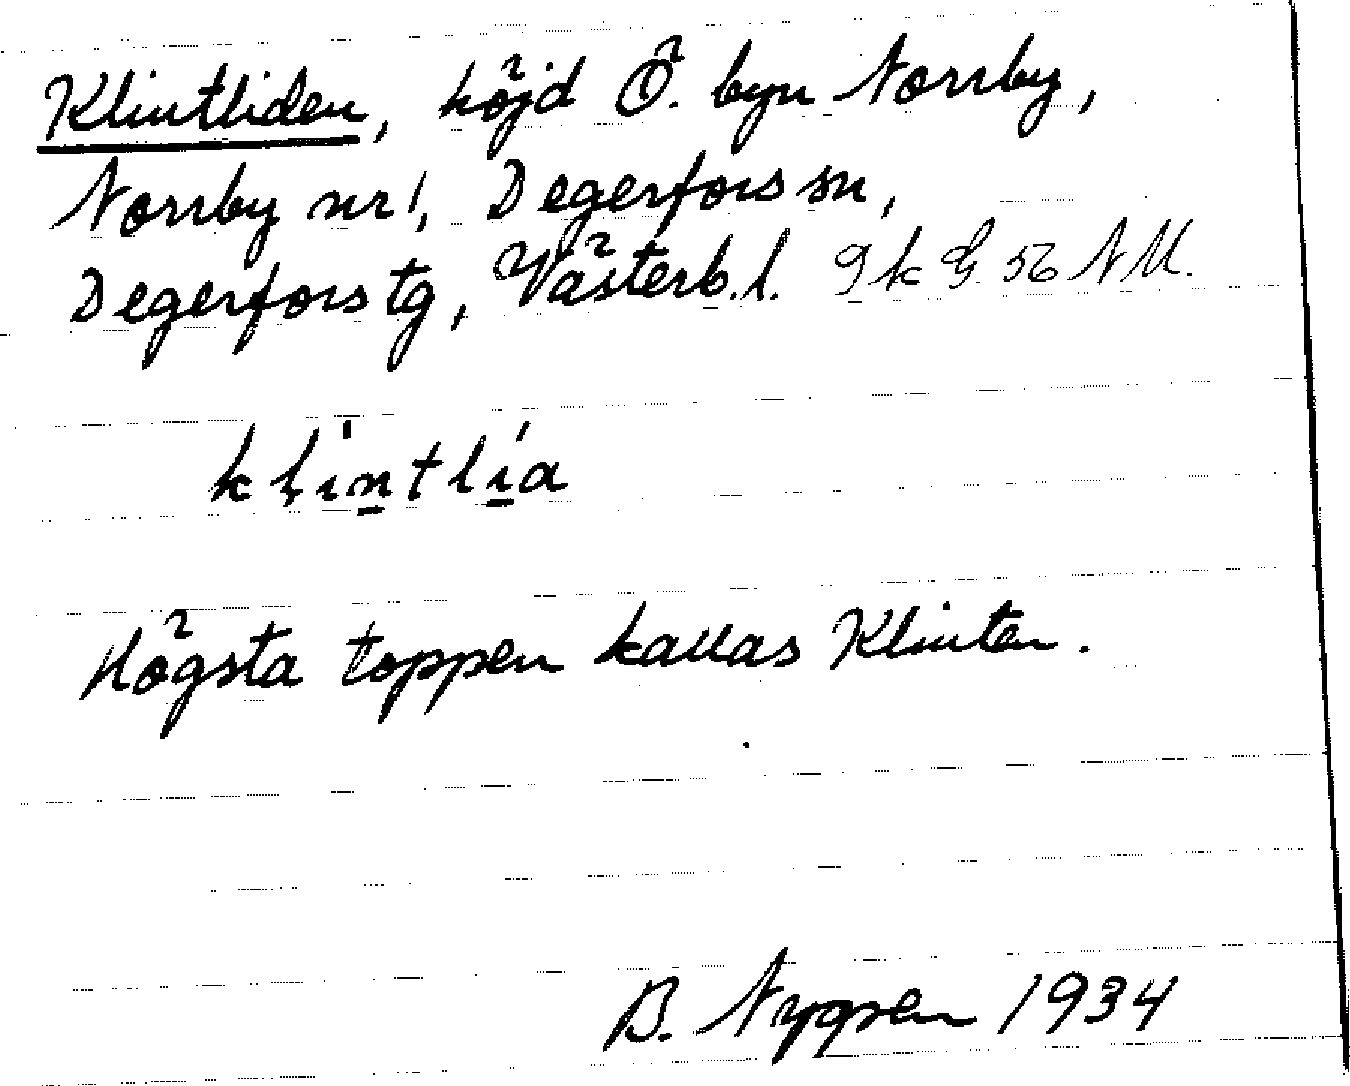 Klintliden, höjd Ö. byn Norrby,
Norrby nr 1, Degerfors sn,
Degerfors tg, Västerb. l. 9 k G 56 NM.
klintlia
Högsta toppen kallas Klinten.
B. Nygren 1934